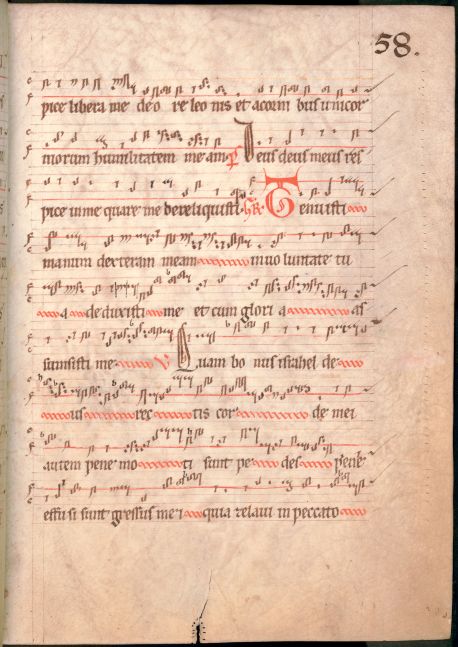 58.
pice libera me de o re leo nis et a corni bus unicor
niorum humilitatem meam P Deus deus meus res
pice in me quare me dereliquisti. GR. Tenuisti
manum dexteram meam in uo luntate tu
a deduxisti me et cum glori a as
sumsisti me V Quam bo nus israhel de
us rec tis cor de mei
autem pene mo ti sunt pe des pene
effusi sunt gressus mei quia zelaui in peccato